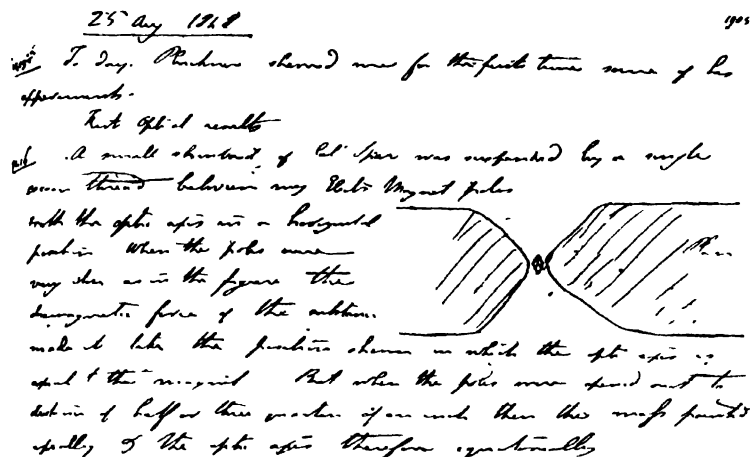 25 Aug 1848
To day. Plucker shewed me for the first time some of his
experiments.
First optical results
A small rhomboid of Cal Spar was suspended by a single
thread between my Electro Magnet poles
with the optic axis in a horizontal
position When the poles were
very close as in the figure the
diamagnetic force of the substance
made it take the position shewn in which the optic axis is
the magnet But when the poles were opened out to
distance of half or three quarters of an inch then the mass pointed
the optic axis therefore equatorially